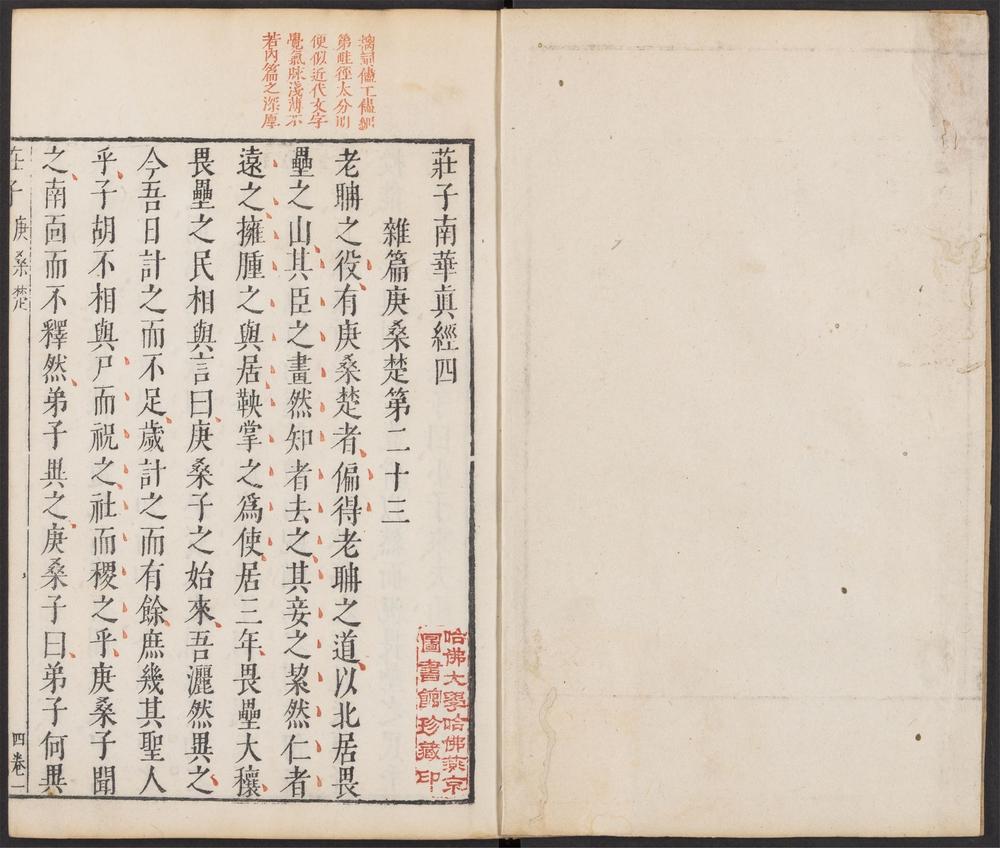 摛詞儘工儘細
第畦徑太分明
便似近代文字
覺氣脉淺薄不
若內篇之深厚
莊子南華眞經四
雜篇庚桑楚第二十三
老聃之役有庚桑楚者偏得老聃之道以北居畏
壘之山其臣之畫然知者去之其妾之絜然仁者
遠之擁腫之與居鞅掌之爲使居三年畏壘大穰
畏壘之民相與言曰庚桑子之始來吾灑然異之
今吾日計之而不足歲計之而有餘庶幾其聖人
乎子胡不相與尸而祝之社而稷之乎庚桑子聞
之南面而不釋然弟子異之庚桑子曰弟子何異
莊子 庚桑楚 四卷一
哈佛大學哈佛燕京
圖書館珍藏印